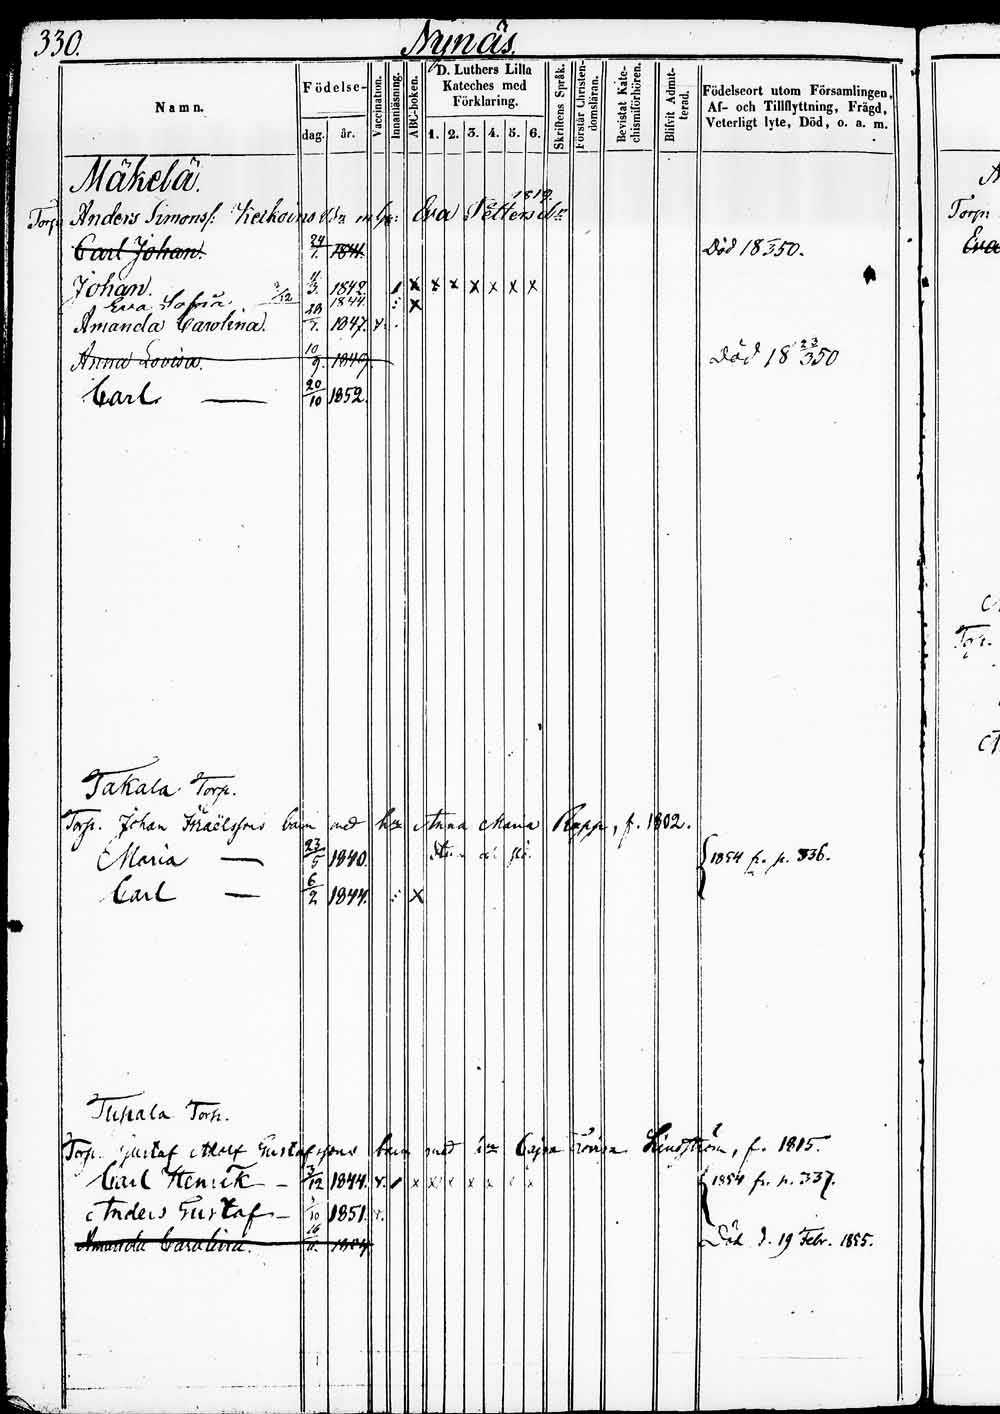 330. Nynäs.
Namn.
Födelse-
dag. år.
Vaccination.
Innanläsning.
ABC-boken.
D. Luthers Lilla
Kateches med
Förklaring.
1. 2. 3. 4. 5. 6.
Skriftens Språk.
Förstår Christen-
domsläran.
Bevistat Kate-
chismiförhören.
Blifvit Admit-
terad.
Födelseort utom Församlingen,
Af- och Tillflyttning, Frägd,
Veterligt lyte, Död, o. a. m.
Mäkelä.
1819.
Torp. Anders Simonss: Eva Petters
Carl Johan. 24/1. 1841. Död 18 350.
Johan. 11/3. 1842. x x x x x x x
Eva Sofia 2/12 1844. x
Amanda Carolina. 28/7. 1847. v.
Anna Lovisa. 10/9. 1849. Död 18 23/3 50
Carl. — 20/10 1852.
Takala Torp.
Torp. Johan Israelssons barn med Anna Maria Rapp, f. 1802.
Maria — 23/5 1840. 1854 fr. p. 336.
Carl — 6/2 1844. x
Tupala Torp.
Torp. Gustaf Adolf Gustafssons barn med Cajsa Lovisa Lindström, f. 1815.
Carl Henrik — 3/12 1844. v. x x x x x x x 1854 fr. p. 337.
Anders Gustaf — 1/10 1851. v.
Amanda Carolina. 16/11. 1854 Död d. 19 Febr. 1855.
Torp.
Eva
Torp.